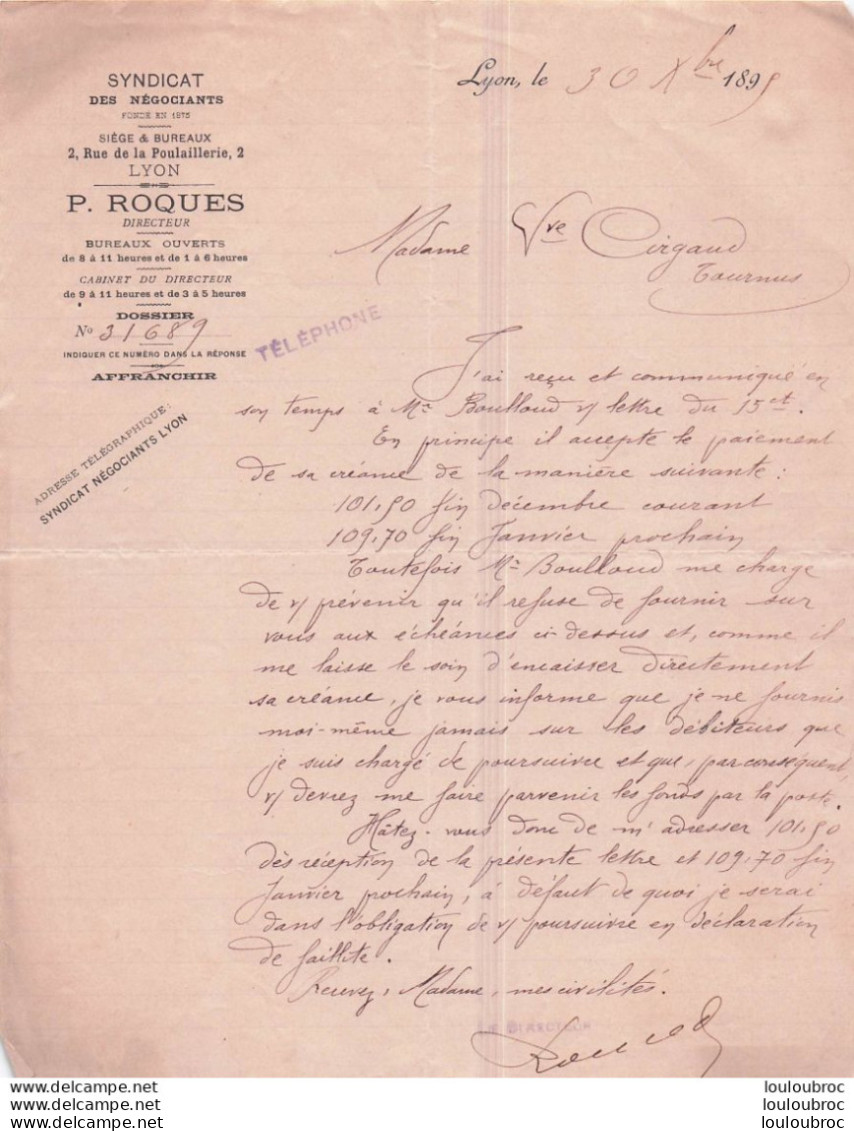 SYNDICAT
DES NÉGOCIANTS
FONDÉ EN 1875
SIÈGE & BUREAUX
2, Rue de la Poulaillerie, 2
LYON
P. ROQUES
DIRECTEUR
BUREAUX OUVERTS
de 8 à 11 heures et de 1 à 6 heures
CABINET DU DIRECTEUR
de 9 à 11 heures et de 3 à 5 heures
DOSSIER
No 31689
INDIQUER CE NUMÉRO DANS LA RÉPONSE
AFFRANCHIR
ADRESSE TÉLÉGRAPHIQUE:
SYNDICAT NÉGOCIANTS LYON
TÉLÉPHONE
Lyon, le 30 Xbre 1895
Madame Vve Cirgaud
Tournus
J'ai reçu et communiqué en
son temps à Mr Boulloud v/ lettre du 15 ct.
En principe il accepte le paiement
de sa créance de la manière suivante:
101,50 fin décembre courant
109,70 fin Janvier prochain
Toutefois Mr Boulloud me charge
de v/ prévenir qu'il refuse de fournir sur
vous aux échéances ci-dessus et, comme il
me laisse le soin d'encaisser directement
sa créance, je vous informe que je ne fournis
moi-même jamais sur les débiteurs que
je suis chargé de poursuivre et que, par conséquent,
v/ devrez me faire parvenir les fonds par la poste.
Hâtez-vous donc de m'adresser 101,50
dès réception de la présente lettre et 109,70 fin
Janvier prochain, à défaut de quoi je serai
dans l'obligation de v/ poursuivre en déclaration
de faillite.
Recevez, Madame, mes civilités.
LE DIRECTEUR
Roques
louloubroc
louloubroc
louloubroc
www.delcampe.net
www.delcampe.net
www.delcampe.net